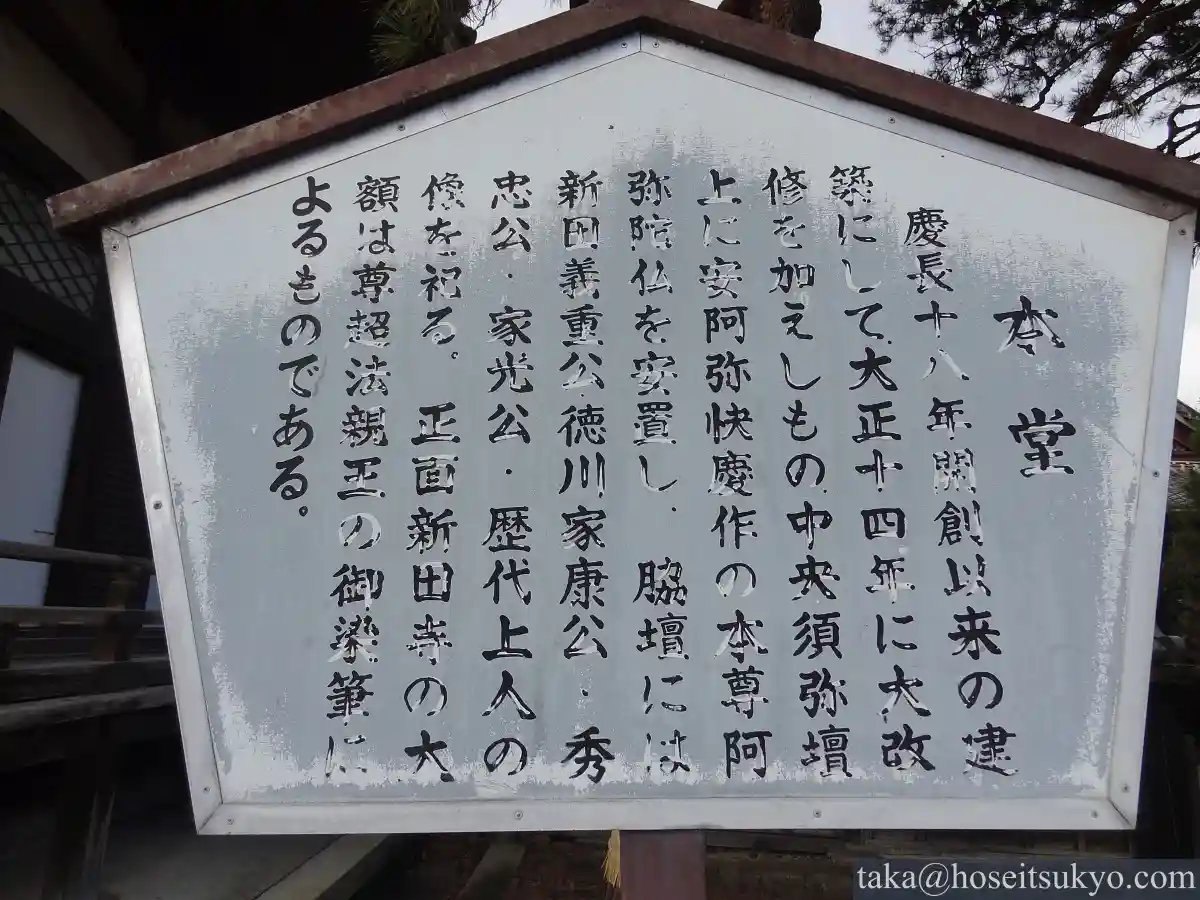 本堂
慶長十八年開創以来の建
築にして大正十四年に大改
修を加えしもの中央須弥壇
上に安阿弥快慶作の本尊阿
弥陀仏を安置し.脇壇には
新田義重公徳川家康公.秀
忠公.家光公.歴代上人の
像を祀る。正面新田寺の大
額は尊超法親王の御染筆に
よるものである。
taka@hoseitsukyo.com